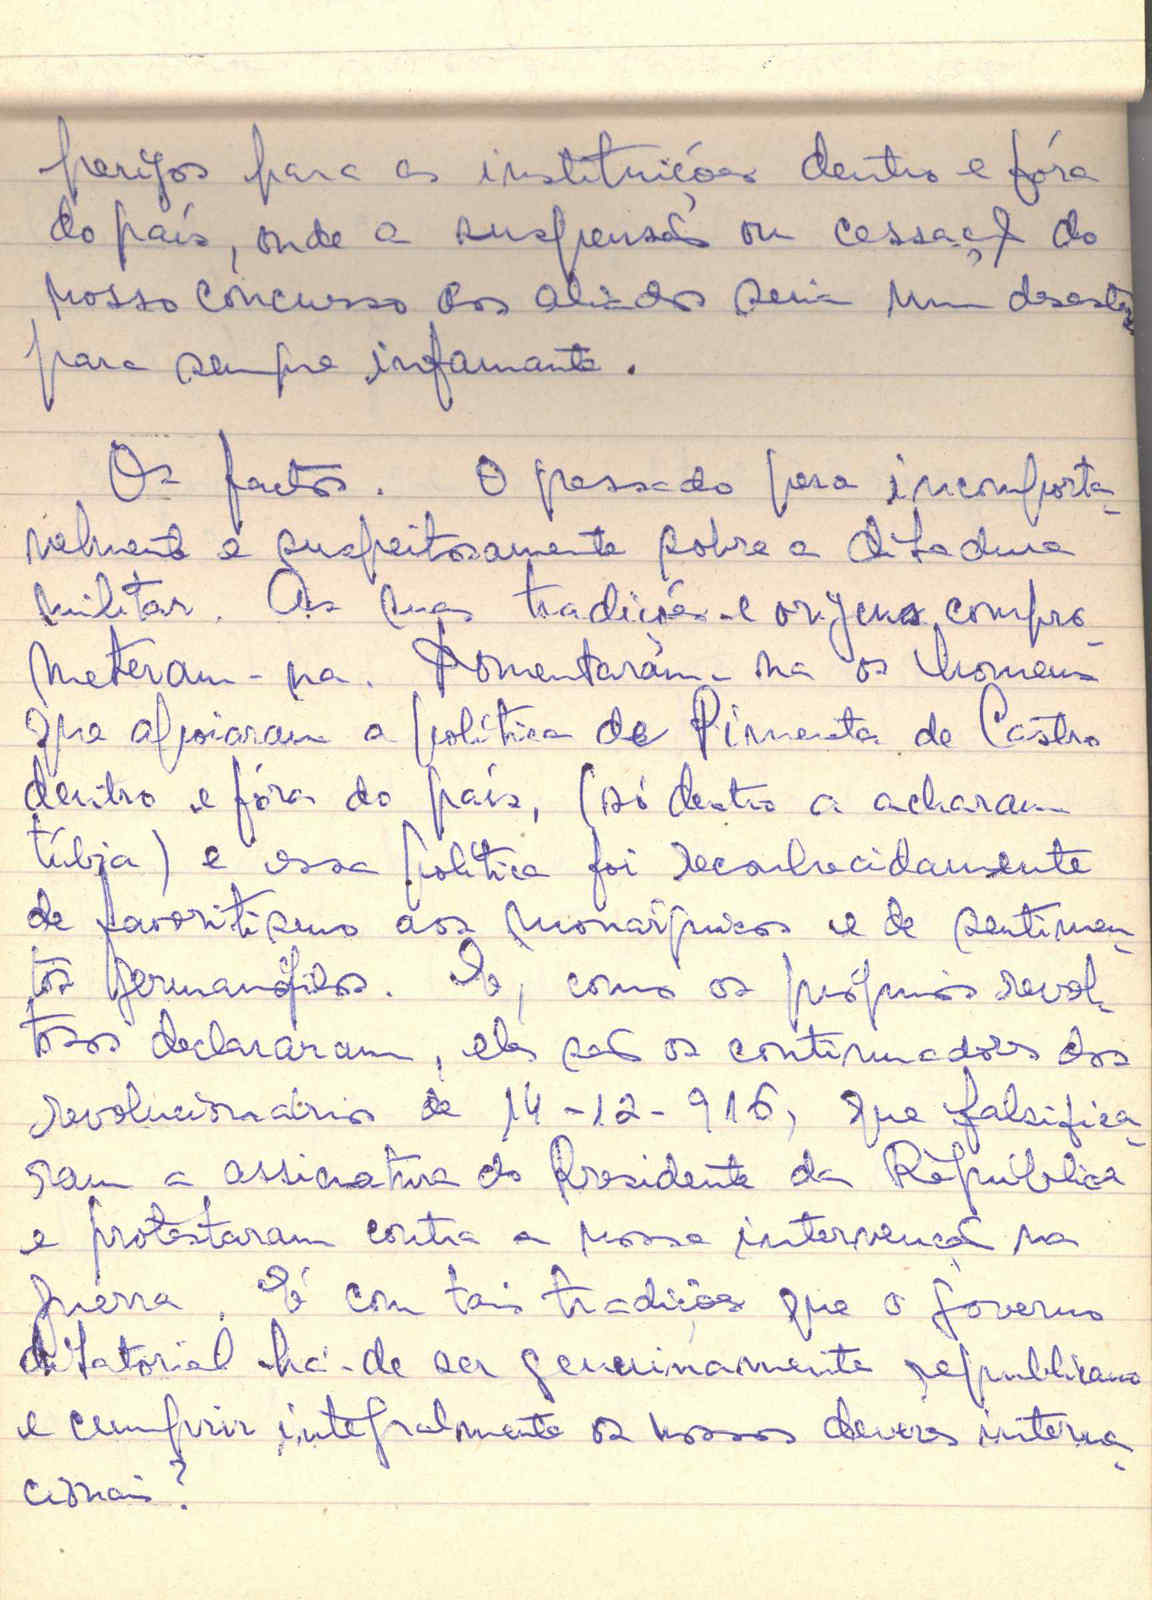 perigos para as instituições dentro e fóra
do país, onde a suspensão ou cessaçã do
nosso concurso aos aliados seria um desastre
para sempre infamante.
Os factos. O passado pesa incomporta-
velmente e suspeitosamente sobre a ditadura
militar. As suas tradições e origens compro-
meteram-na. Fomentaram-na os homens
que apoiaram a política de Pimenta de Castro
dentro e fóra do país, (só dentro a acharam
túbia) e essa política foi reconhecidamente
de favoritismo aos monárquicos e de sentimen-
tos germanófilos. E, como os próprios revol-
tosos declararam, eles são os continuadores dos
revolucionários de 14-12-916, que falsifica-
ram a assinatura do Presidente da República
e protestaram contra a nossa intervenção na
guerra. É com tais tradições que o governo
ditatorial há-de ser genuinamente republicano
e cumprir integralmente os nossos deveres interna-
cionais?